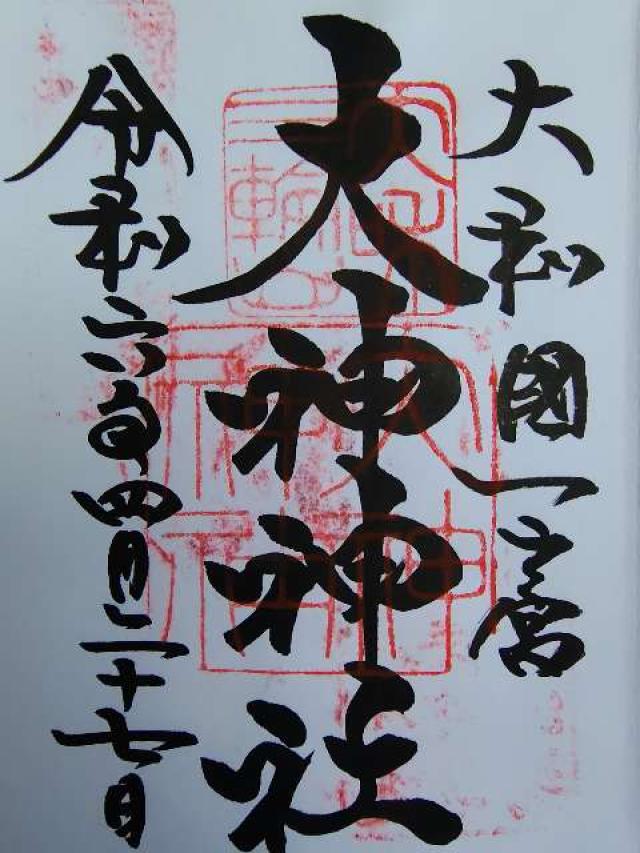 大和國一之宮
大神神社
令和六年四月二十七日